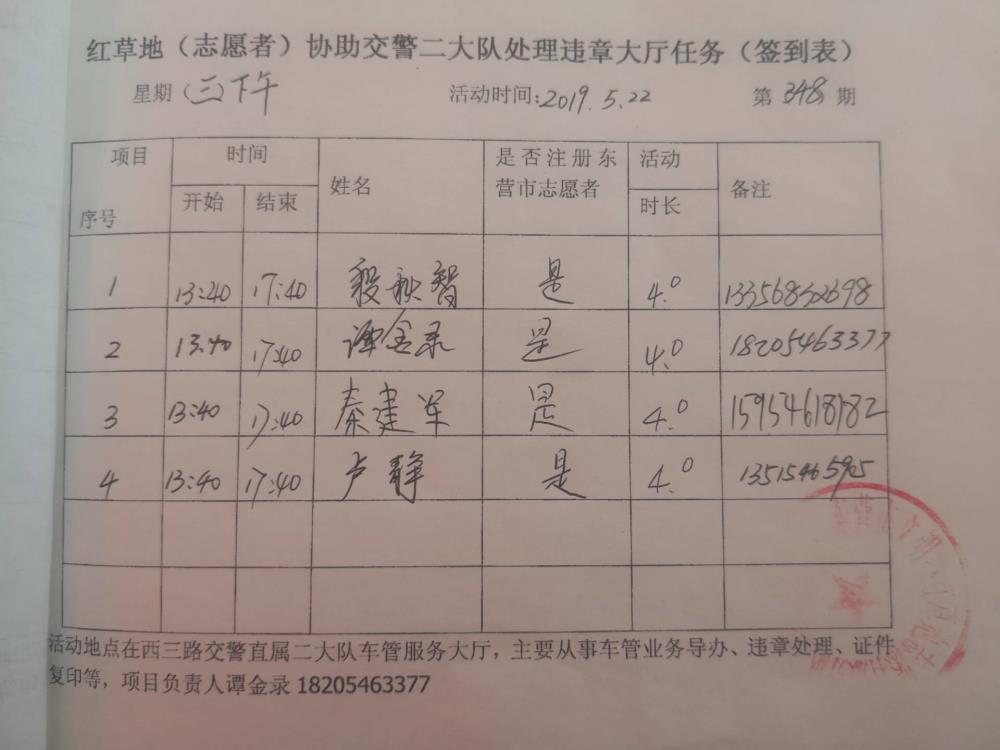 红草地（志愿者）协助交警二大队处理违章大厅任务（签到表）
星期 三下午 活动时间:2019.5.22 第 348 期
项目 时间 姓名 是否注册东 活动 备注
序号 开始 结束 营市志愿者 时长
1 13:40 17:40 是 4.0 13356832698
2 13:40 17:40 谭金录 是 4.0 18205463377
3 13:40 17:40 秦建军 是 4.0 15954618182
4 13:40 17:40 卢静 是 4.0
活动地点在西三路交警直属二大队车管服务大厅，主要从事车管业务导办、违章处理、证件
复印等，项目负责人谭金录 18205463377